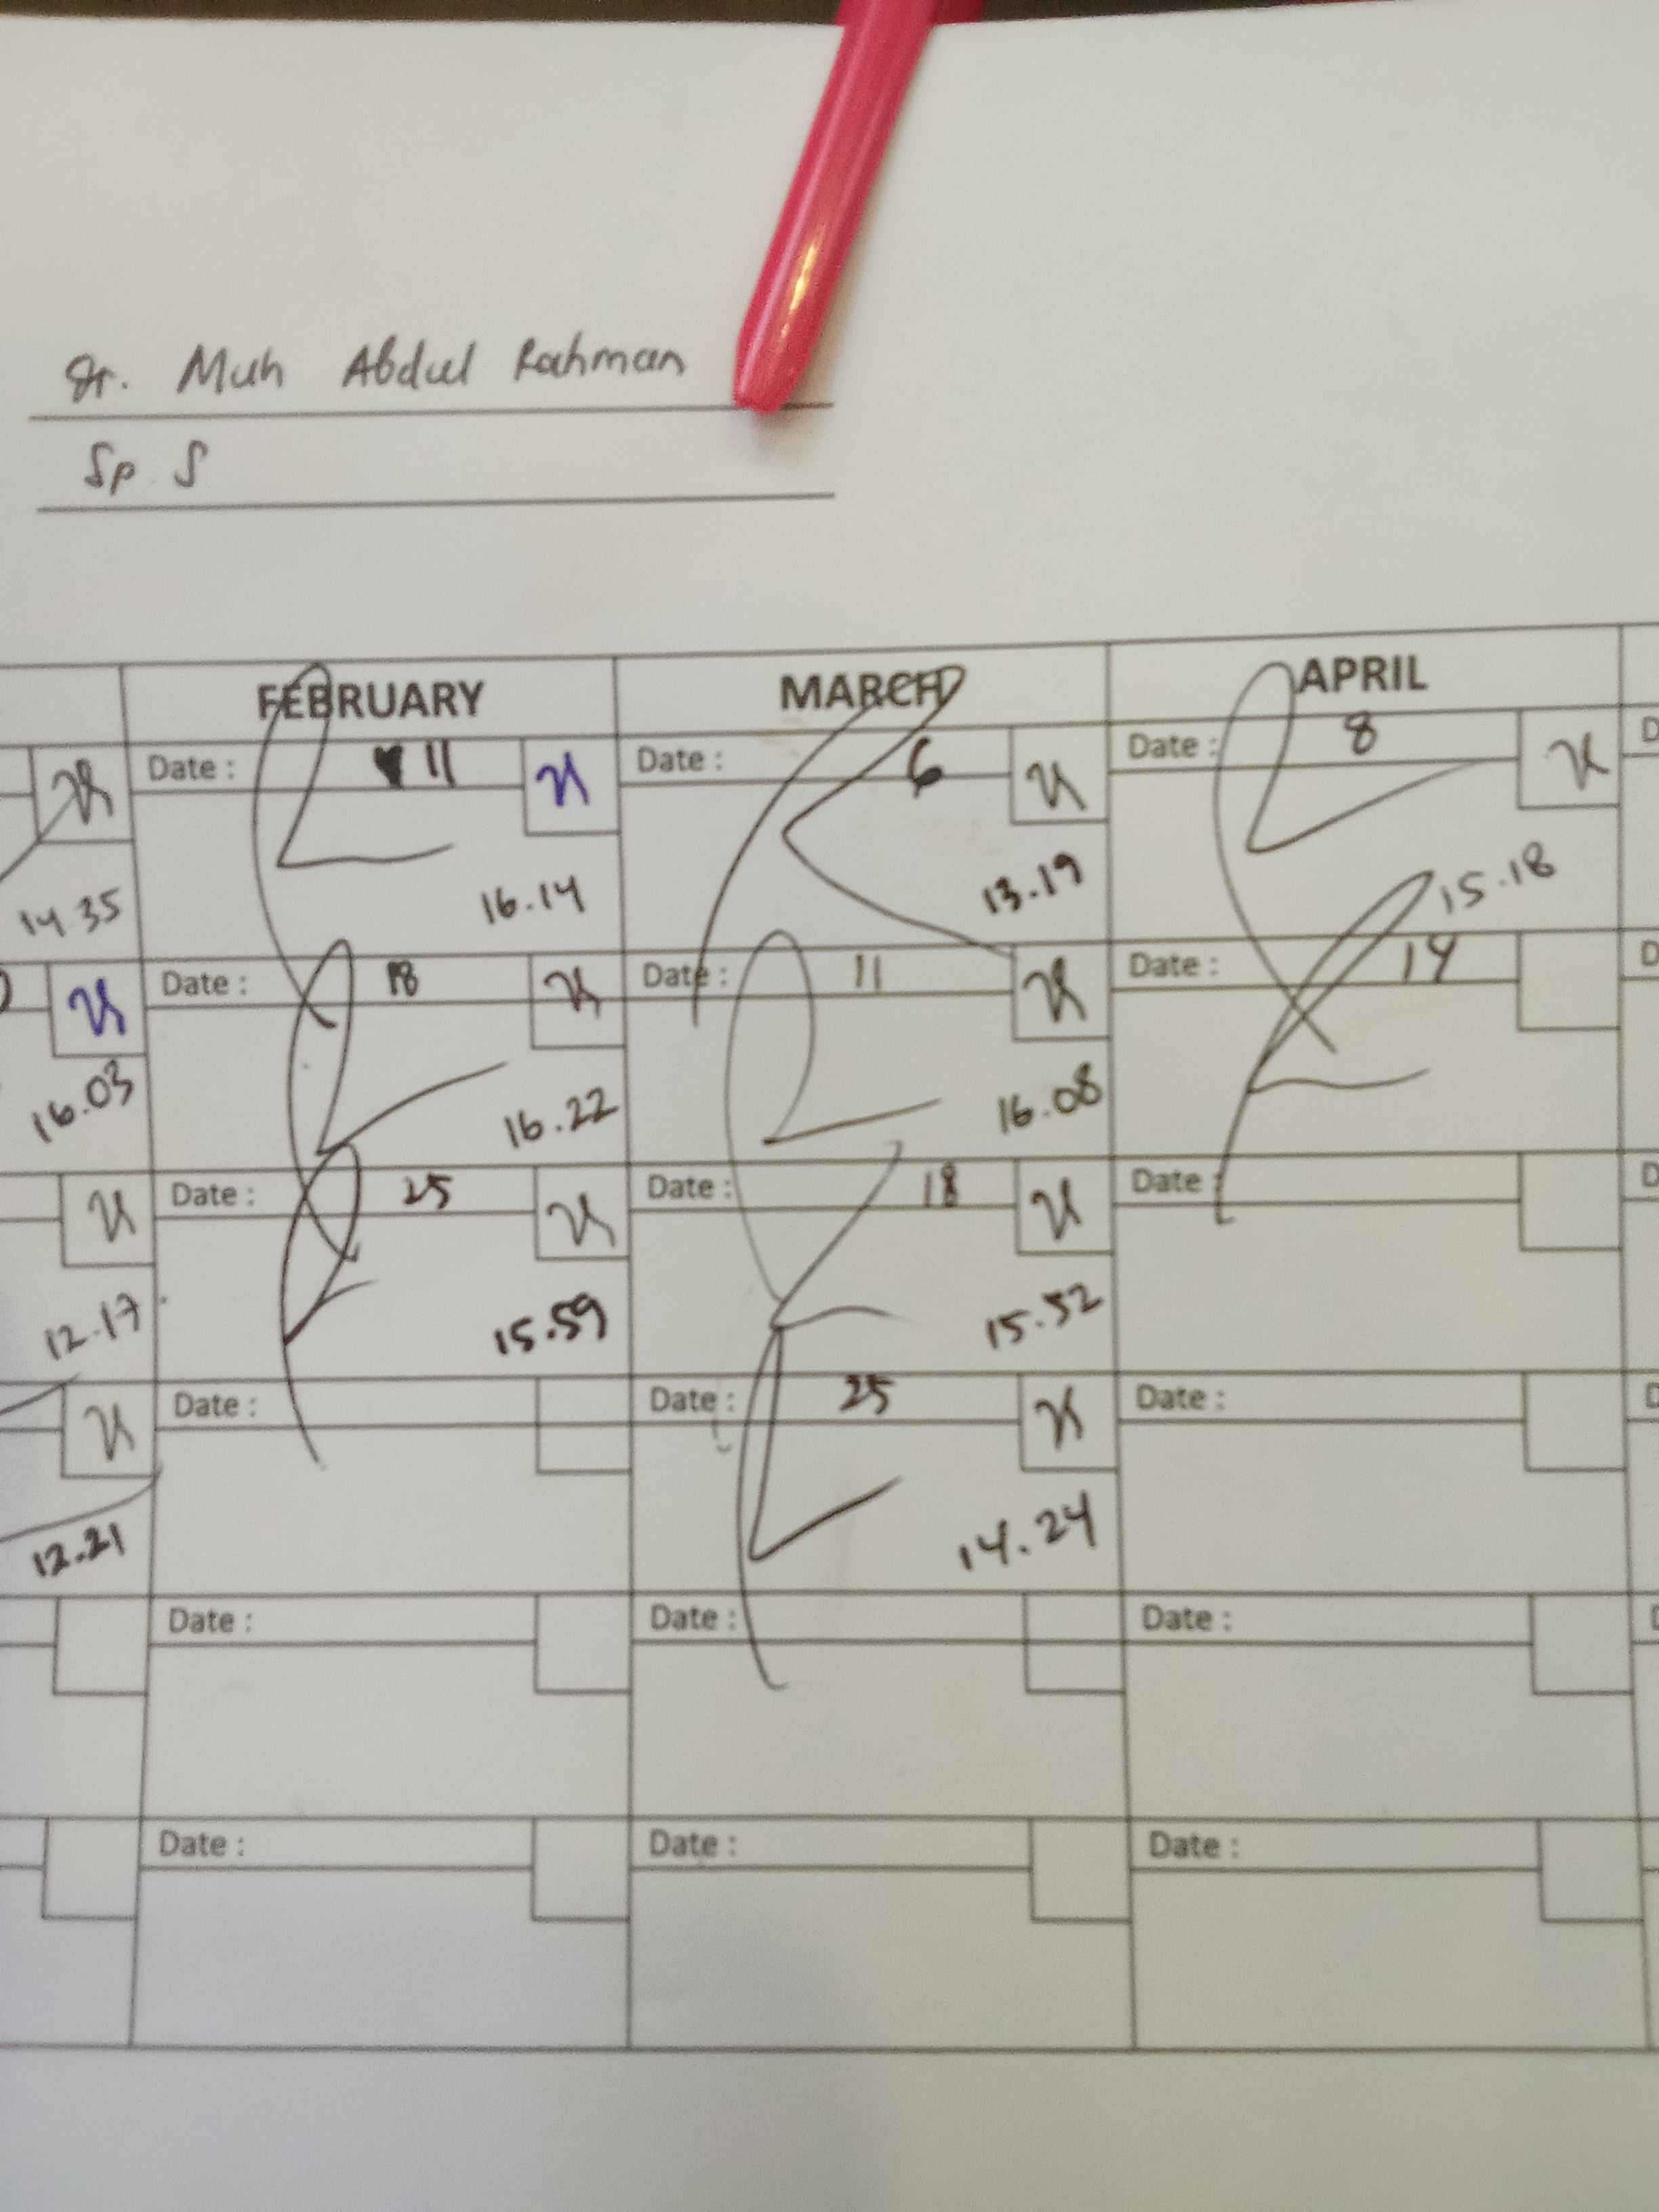 dr. Muh Abdul Rahman
Sp S
FEBRUARY MARCH APRIL
Date : 11 Date : 6 Date : 8 D
14.35 16.14 13.19 15.18
Date : 18 Date : 11 Date : 14 D
16.03 16.22 16.08
Date : 25 Date : 18 Date : D
12.17 15.59 15.52
Date : Date : 25 Date : D
12.21 14.24
Date : Date : Date :
Date : Date : Date :